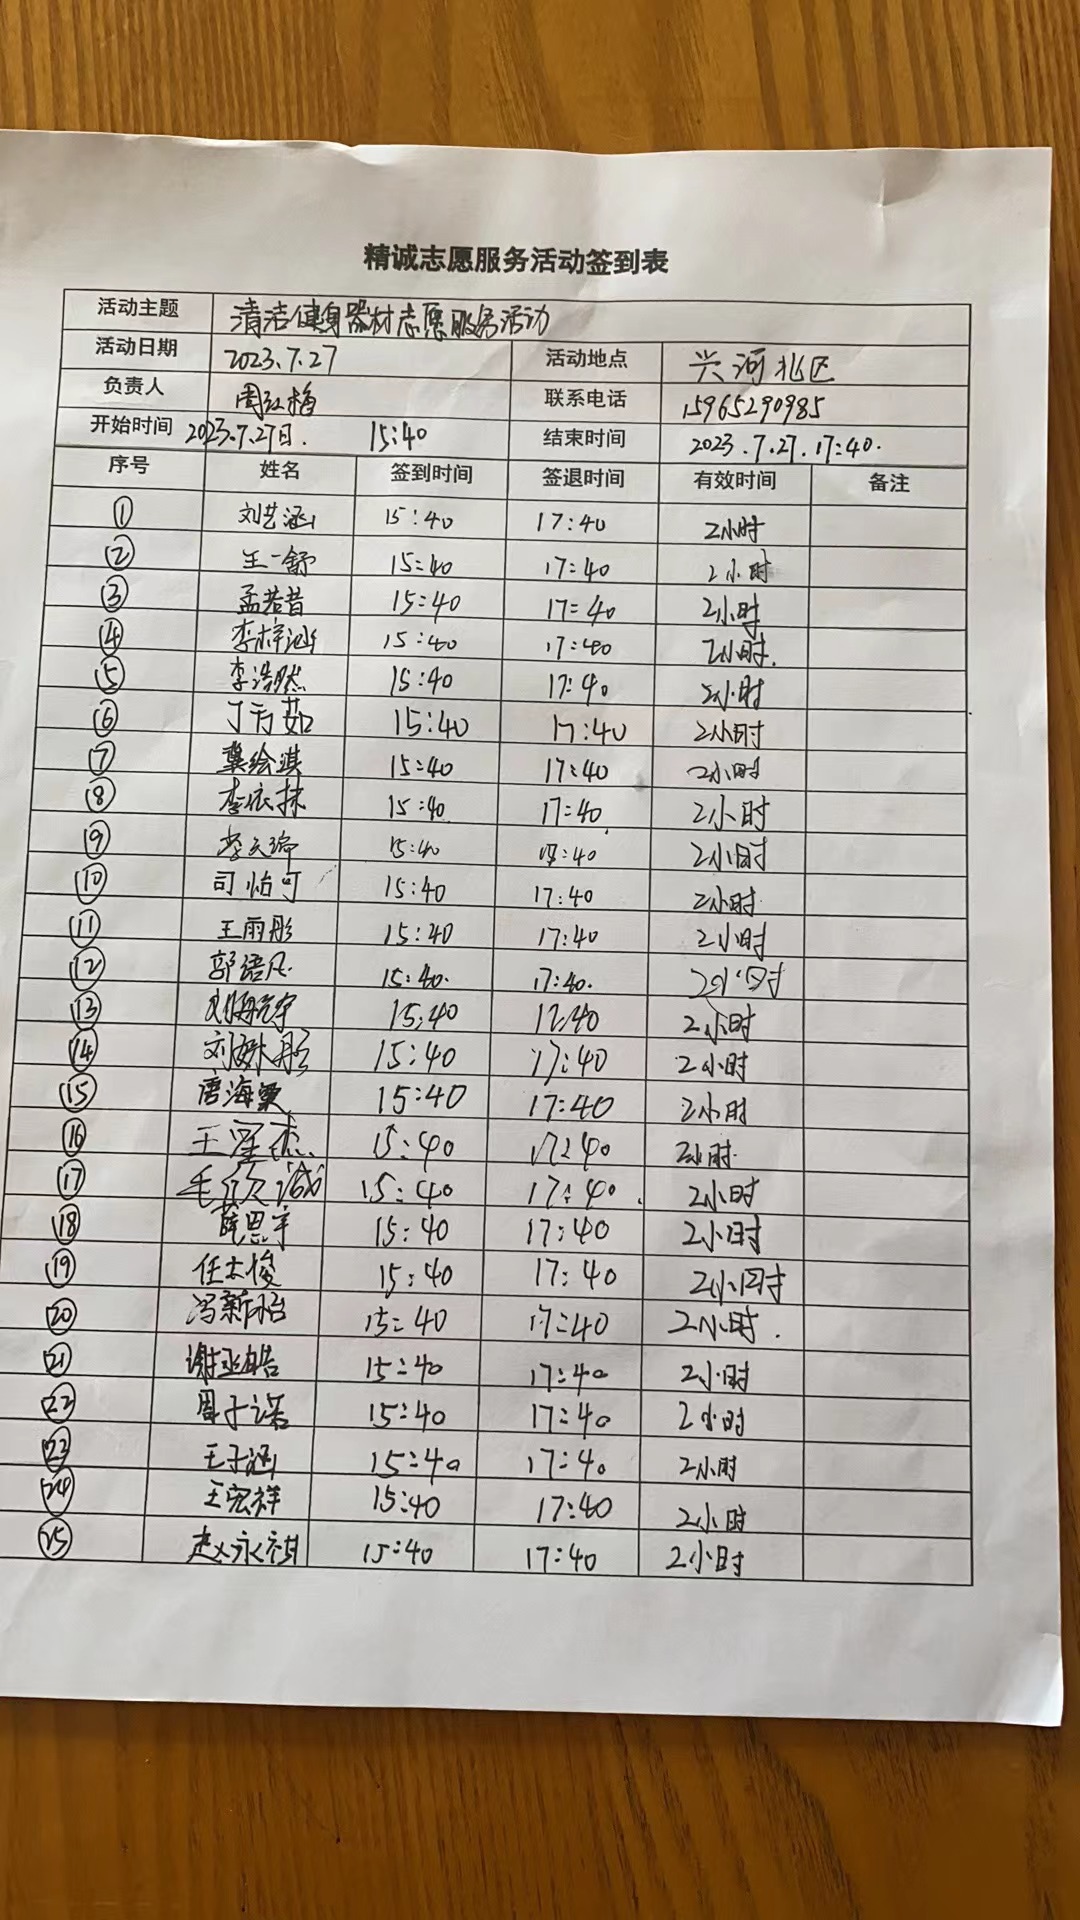 精诚志愿服务活动签到表
活动主题 清洁健身器材志愿服务活动
活动日期 2023.7.27 活动地点 兴河北区
负责人 周红梅 联系电话 15965290985
开始时间 2023.7.27日. 15:40 结束时间 2023.7.27.17:40.
序号 姓名 签到时间 签退时间 有效时间 备注
① 刘艺涵 15:40 17:40 2小时
② 王一舒 15:40 17:40 2小时
③ 孟若昔 15:40 17:40 2小时
④ 李梓涵 15:40 17:40 2小时.
⑤ 李浩然 15:40 17:40 2小时
⑥ 丁方茹 15:40 17:40 2小时
⑦ 龚绘淇 15:40 17:40 2小时
⑧ 李依林 15:40 17:40 2小时
⑨ 15:40 17:40 2小时
⑩ 司怡可 15:40 17:40 2小时
⑪ 王雨彤 15:40 17:40 2小时
⑫ 郭语凡 15:40. 17:40. 2小时
⑬ 15:40 17:40 2小时
⑭ 刘姝彤 15:40 17:40 2小时
⑮ 唐海粟 15:40 17:40 2小时
⑯ 15:40 17:40 2小时.
⑰ 毛欣诚 15:40 17:40. 2小时
⑱ 薛思宇 15:40 17:40 2小时
⑲ 任杰俊 15:40 17:40 2小时
⑳ 冯新怡 15:40 17:40 2小时.
㉑ 谢亚皓 15:40 17:40 2小时
㉒ 周子诺 15:40 17:40 2小时
㉓ 王子涵 15:40 17:40 2小时
㉔ 王宏祥 15:40 17:40 2小时
㉕ 赵永祺 15:40 17:40 2小时